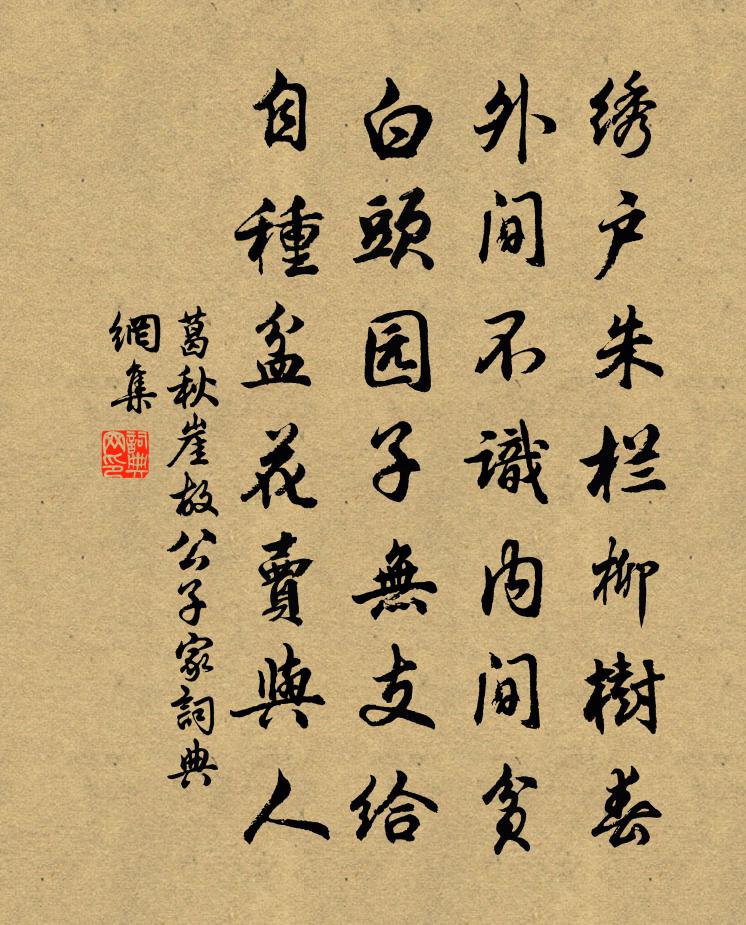 绣户朱栏柳樹春
外间不識内间貧
白頭园子無支给
自種盆花賣與人
葛秋崖故公子家詞典
網集
詞典網印